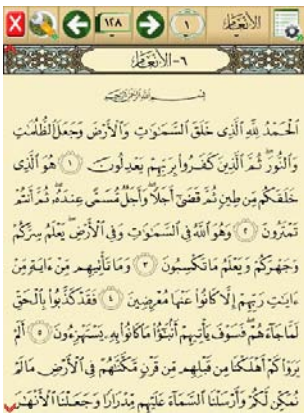 الأنعام ١ ١٢٨
٦- الأنعام
بسم الله الرحمن الرحيم
ٱلْحَمْدُ لِلَّهِ ٱلَّذِى خَلَقَ ٱلسَّمَـٰوَٰتِ وَٱلْأَرْضَ وَجَعَلَ ٱلظُّلُمَـٰتِ
وَٱلنُّورَ ۖ ثُمَّ ٱلَّذِينَ كَفَرُوا۟ بِرَبِّهِمْ يَعْدِلُونَ ١ هُوَ ٱلَّذِى
خَلَقَكُم مِّن طِينٍ ثُمَّ قَضَىٰٓ أَجَلًا ۖ وَأَجَلٌ مُّسَمًّى عِندَهُۥ ۖ ثُمَّ أَنتُمْ
تَمْتَرُونَ ٢ وَهُوَ ٱللَّهُ فِى ٱلسَّمَـٰوَٰتِ وَفِى ٱلْأَرْضِ ۖ يَعْلَمُ سِرَّكُمْ
وَجَهْرَكُمْ وَيَعْلَمُ مَا تَكْسِبُونَ ٣ وَمَا تَأْتِيهِم مِّنْ ءَايَةٍ مِّنْ
ءَايَـٰتِ رَبِّهِمْ إِلَّا كَانُوا۟ عَنْهَا مُعْرِضِينَ ٤ فَقَدْ كَذَّبُوا۟ بِٱلْحَقِّ
لَمَّا جَآءَهُمْ ۖ فَسَوْفَ يَأْتِيهِمْ أَنۢبَـٰٓؤُا۟ مَا كَانُوا۟ بِهِۦ يَسْتَهْزِءُونَ ٥ أَلَمْ
يَرَوْا۟ كَمْ أَهْلَكْنَا مِن قَبْلِهِم مِّن قَرْنٍ مَّكَّنَّـٰهُمْ فِى ٱلْأَرْضِ مَا لَمْ
نُمَكِّن لَّكُمْ وَأَرْسَلْنَا ٱلسَّمَآءَ عَلَيْهِم مِّدْرَارًا وَجَعَلْنَا ٱلْأَنْهَـٰرَ